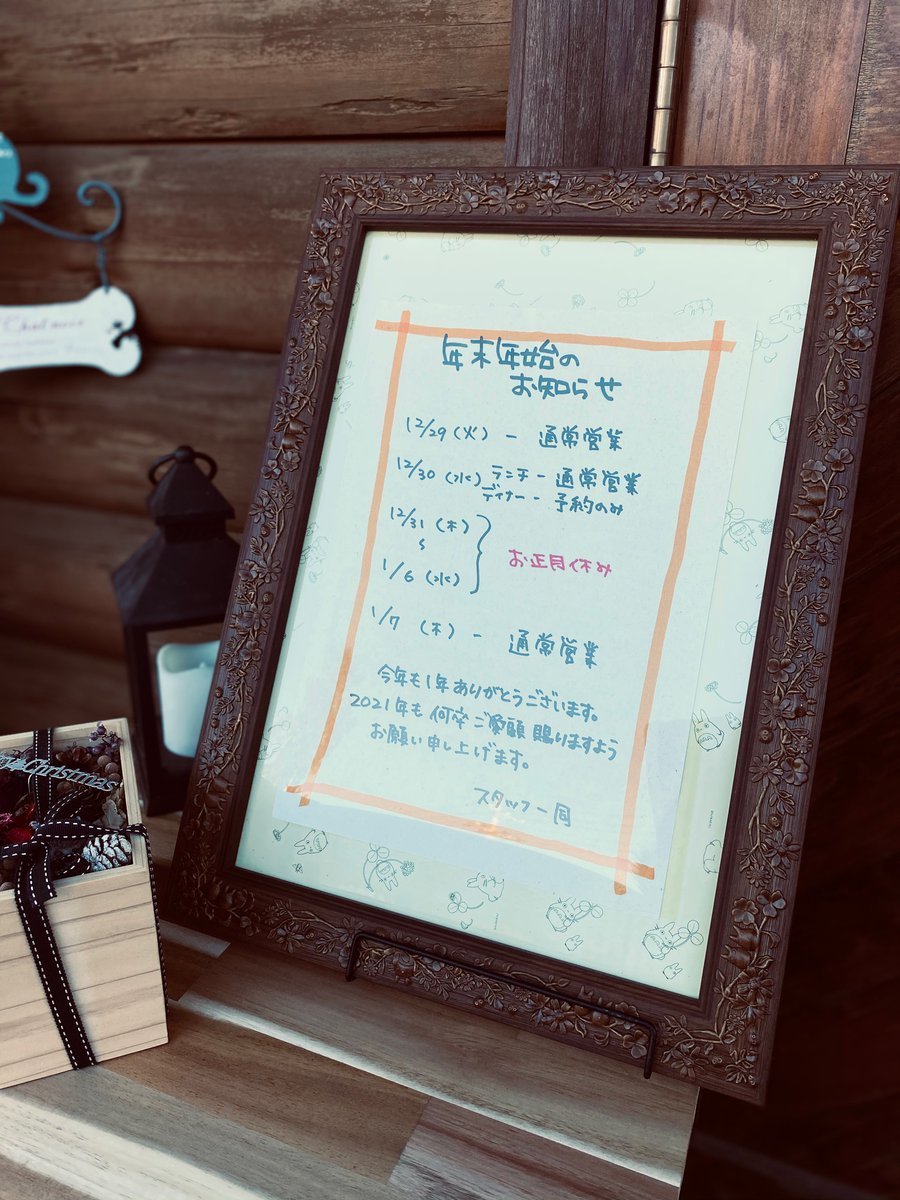 年末年始の
お知らせ
12/29(火) - 通常営業
12/30(水) ランチ - 通常営業
ディナー - 予約のみ
12/31(木)
〜
1/6(水)
お正月休み
1/7(木) - 通常営業
今年も1年ありがとうございます。
2021年も何卒ご愛顧賜りますよう
お願い申し上げます。
スタッフ一同
Christmas